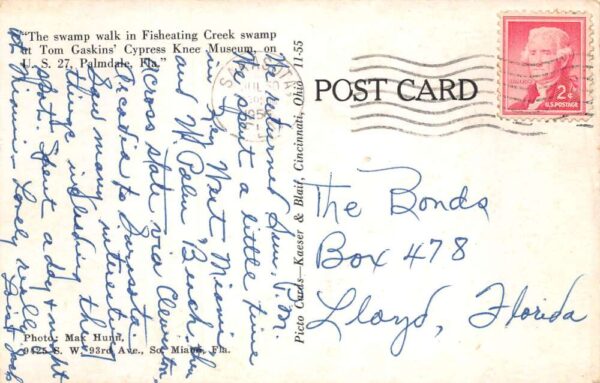 "The swamp walk in Fisheating Creek swamp
at Tom Gaskins' Cypress Knee Museum, on
U. S. 27, Palmdale, Fla."
We returned Sun. P.M.
We spent a little time
in Key West, Miami
and W. Palm Beach. Then
across state via Clewiston,
Arcadia to Sarasota.
Saw many interesting
things including this
spot. Spent a day & night
at Miami - Lovely really
Photo: Max Hunn,
9425 S. W. 93rd Ave., So. Miami, Fla.
Picto Cards—Kaeser & Blair, Cincinnati, Ohio 11-55
POST CARD
SARASOTA
U.S. POSTAGE
2¢
The Bonds
Box 478
Lloyd, Florida